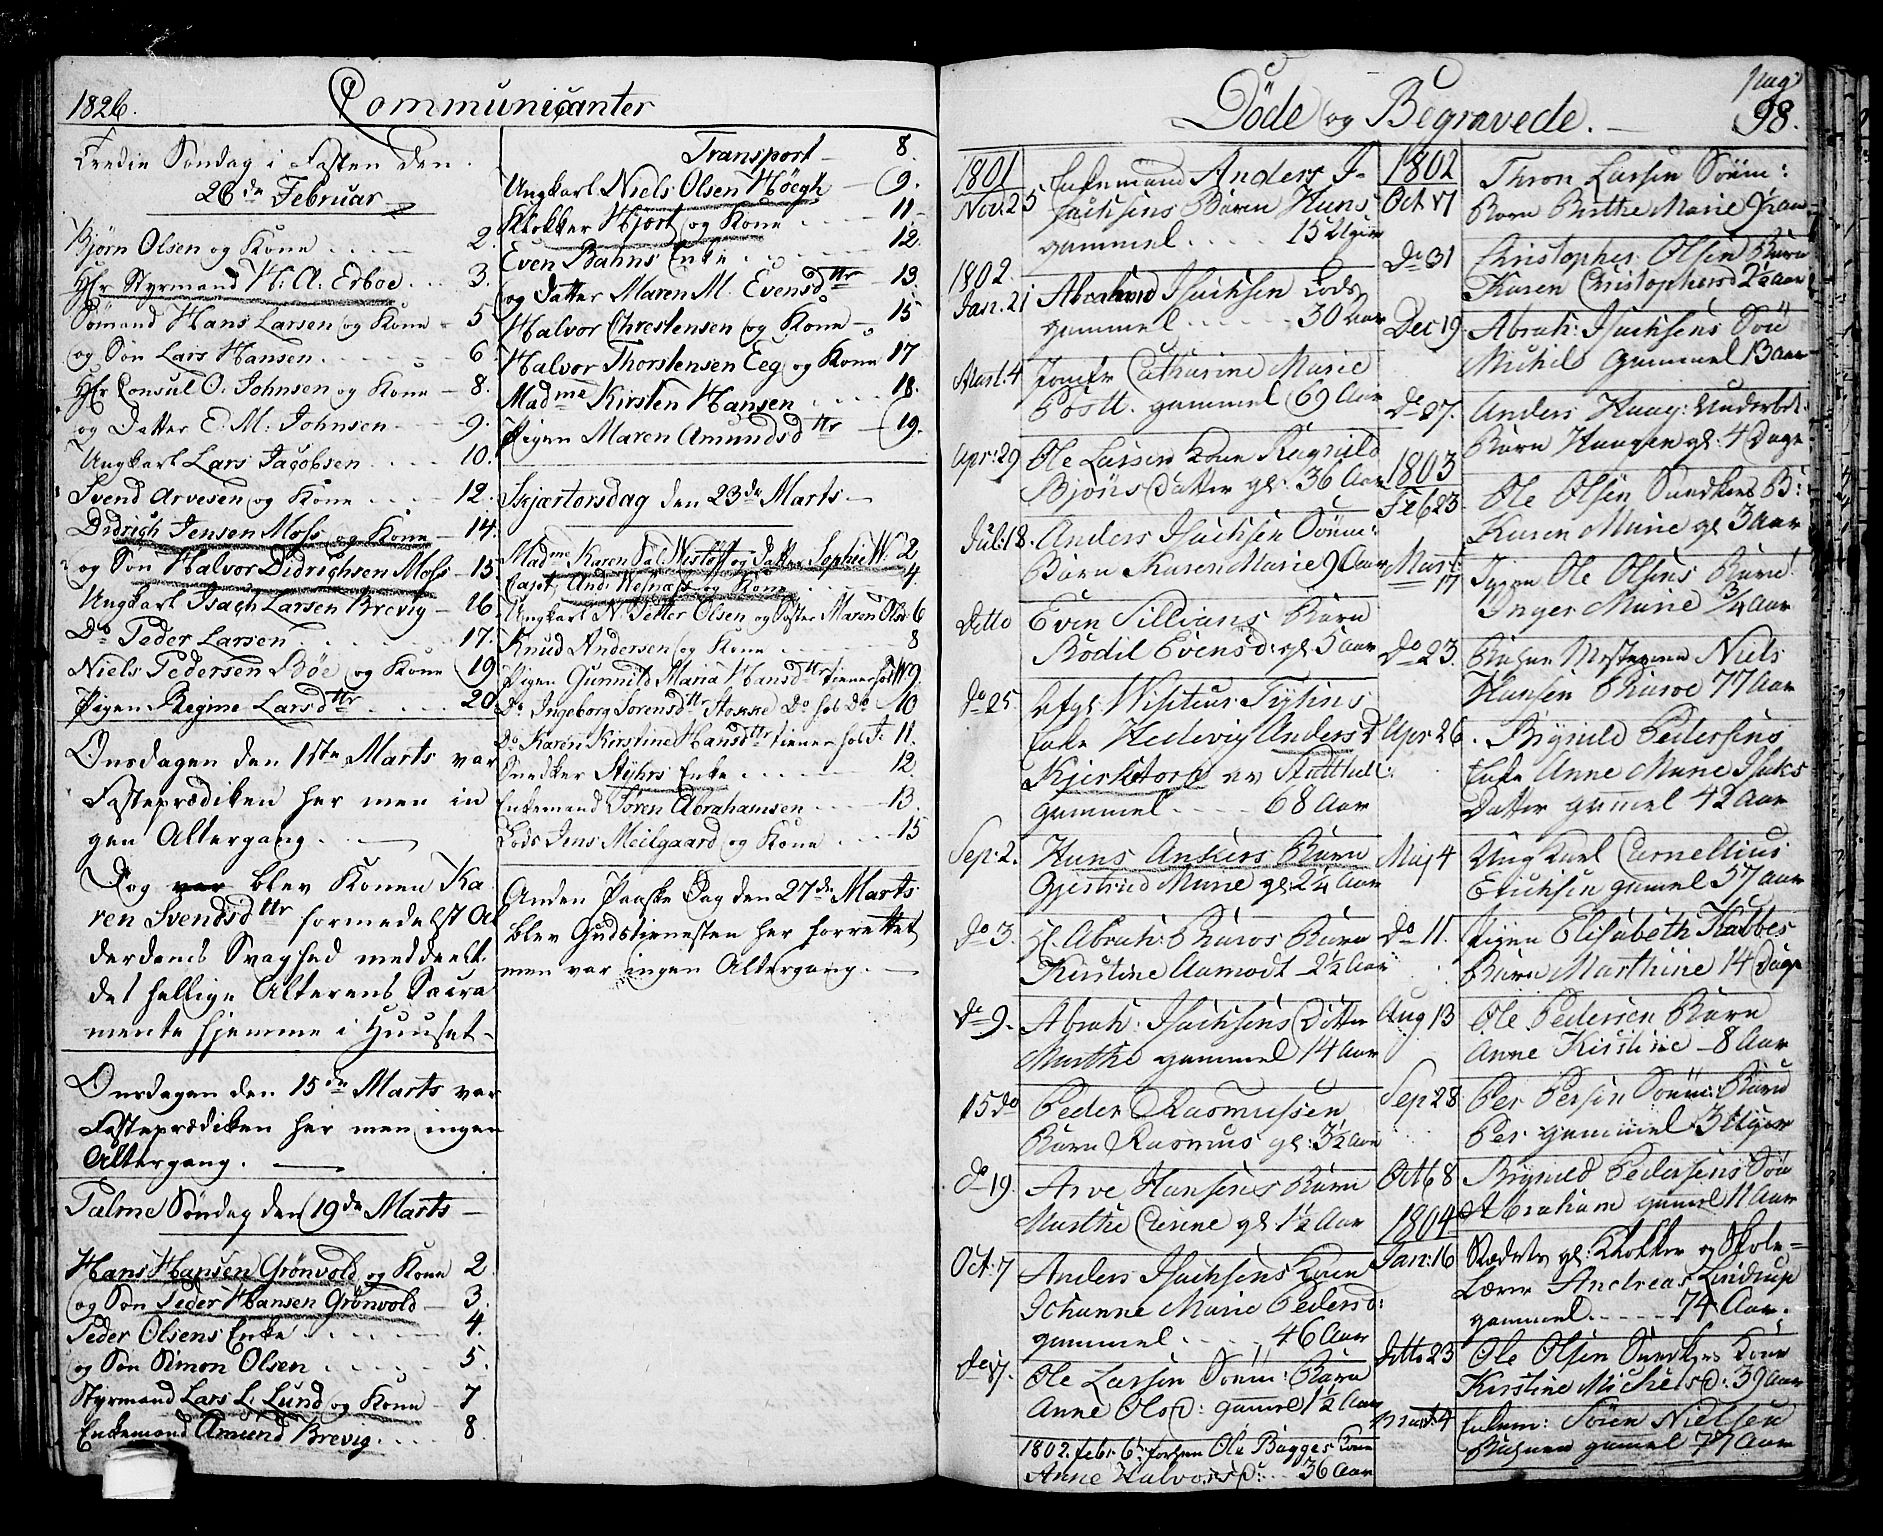 1826.
Communicanter
Tredie Søndag i Fasten den
26de Februar
Bjørn Olsen og Kone 2.
Hr Styrmand H: A: Erboe 3.
Sømand Hans Larsen og Kone 5
og Søn Lars Hansen 6
Hr Consul O. Johnsen og Kone 8.
og Datter E. M. Johnsen 9.
Ungkarl Lars Jacobsen 10.
Svend Arvesen og Kone 12.
Didrich Jensen Moss og Kone 14.
og Søn Halvor Didrichsen Moss 15
Ungkarl Isach Larsen Brevig 16
Do Peder Larsen 17.
Niels Pedersen Bøe og Kone 19
Pigen Regine Larsdttr 20
Onsdagen den 1ste Marts var
Fasteprædiken her men in
gen Altergang.
Dog var blev Konen Ka
ren Svendsdttr formedelst Al
derdoms Svaghed meddeelt
det hellige Alterens Sacra
mente hjemme i Huuset
Onsdagen den 15de Marts var
Fasteprædiken her men ingen
Altergang.
Palme Søndag den 19de Marts
Hans Hansen Grönvold og Kone 2.
og Søn Peder Hansen Grönvold 3.
Peder Olsens Enke 4.
og Søn Simon Olsen 5.
Styrmand Lars L. Lund og Kone 7
Enkemand Amund Brevig 8.
Transport 8.
Ungkarl Niels Olsen Høegh 9.
Klokker Hjort og Kone 11
Even Bahns Enke 12.
og Datter Maren M. Evensdttr 13.
Halvor Chrestensen og Kone 15
Halvor Thorstensen Eeg og Kone 17
Madme Kirsten Hansen 18.
Pigen Maren Amundsdttr 19.
Skjærtorsdag den 23de Marts
Madme Karen Sal. Wistoff og Datter Sophie W. 2
Capt. And. og Kone 4
Ungkarl N. Petter Olsen og Søster Maren Olsd 6
Knud Andersen og Kone 8
Pigen Gunnild Maria Hansdttr tiener hos W. 9.
Do Ingeborg Sørensdttr Stokke Do hos Do 10
Do Karen Kirstine Hansdttr tiener hos 11.
Snedker Styhrs Enke 12.
Enkemand Søren Abrahamsen 13.
Lods Jens Meilgaard og Kone 15
Anden Paaske Dag den 27de Marts
blev Gudstienesten her forrettet
men var ingen Altergang.
Döde og Begravede.
pag
98.
1801
Nov: 25 Enkemand Anders I-
sachsens Barn Hans
gammel 15 Uger
1802.
Jan: 21 Abraham Isachsen Lods
gammel 30 Aar
Mart: 4 Jomfr Catharine Marie
Post. gammel 69 Aar
Apr: 29 Ole Larsen Kone Ragnild
Bjöns Datter gl: 36 Aar
Jul: 18. Anders Isachsen Sönm:
Barn Karen Marie 9 Aar
Ditto Even Sillians Barn
Bodil Evensd: gl: 5 aar
Do 25. Afgl: Visiteur Tysins
Enke Hedevig Andersd
Kjerktorp av
gammel 68 Aar
Sep: 2. Hans Ankers Barn
Gjertrud Marie gl: 2¼ Aar
Do 3. H. Abrah: Barn
Kirstine Aamodt 2½ Aar
Do 9. Abrah: Isachsens Datter
Marthe gammel 14 Aar
15 do Peder Rasmussen
Barn Rasmus gl: 3½ Aar
Do 19. Arve Hansens Barn
Marthe Cirine gl 1½ Aar
Oct: 7 Anders Isachsens Kone
Johanne Marie Pedersd:
gammel 46 Aar
Do 17. Ole Larsen Sönm: Barn
Anne Olsd: gamel 1½ Aar
1802. febr. 6. Ole Bugges Kone
Anne Halvorsd: 36 Aar
1802
Oct 17 Thron Larsen Sönm:
Barn Birthe Marie ½ aar
Do 31 Christopher Olsen Barn
Karen Christophersd 2½ aar
Dec 19 Abrah: Isachsens Sön
Michel gammel 13 Aar
Do 27. Anders Haag: Underbet
Barn Haagen gl: 4 Dage
1803
Feb 23. Ole Olsen Snedkers B:
Karen Marie gl 3 Aar
Mart: 17 Igjen Ole Olsens Barn
Inger Marie ¾ Aar
Do 23. Niels
Hansen 77 Aar
Apr 26. Brynild Pedersens
Enke Anne Marie Isaks
Datter gammel 42 Aar
Maj 4 Ungkarl Carnellius
Erichsen gammel 57 aar
Do 11. Pigen Elisabeth Kabbes
Barn Marthine 14 Dage
Aug 13 Ole Pedersen Barn
Anne Kirstine 8 Aar
Sep 28 Per Persen Sönm: Barn
Per gammel 3 Uger
Oct 8 Brynild Pedersens Sön
Abraham gammel 11 Aar
1804
Jan: 16 Stedets gl: Klokker og Skole-
Lærer Andreas Lindrup
gammel 74 Aar.
Ditto 23 Ole Olsen Snedkers Kone
Kirstine Michelsd: 39 Aar
Mart: 4 Enkem: Sören Nielsen
gamel 77 Aar